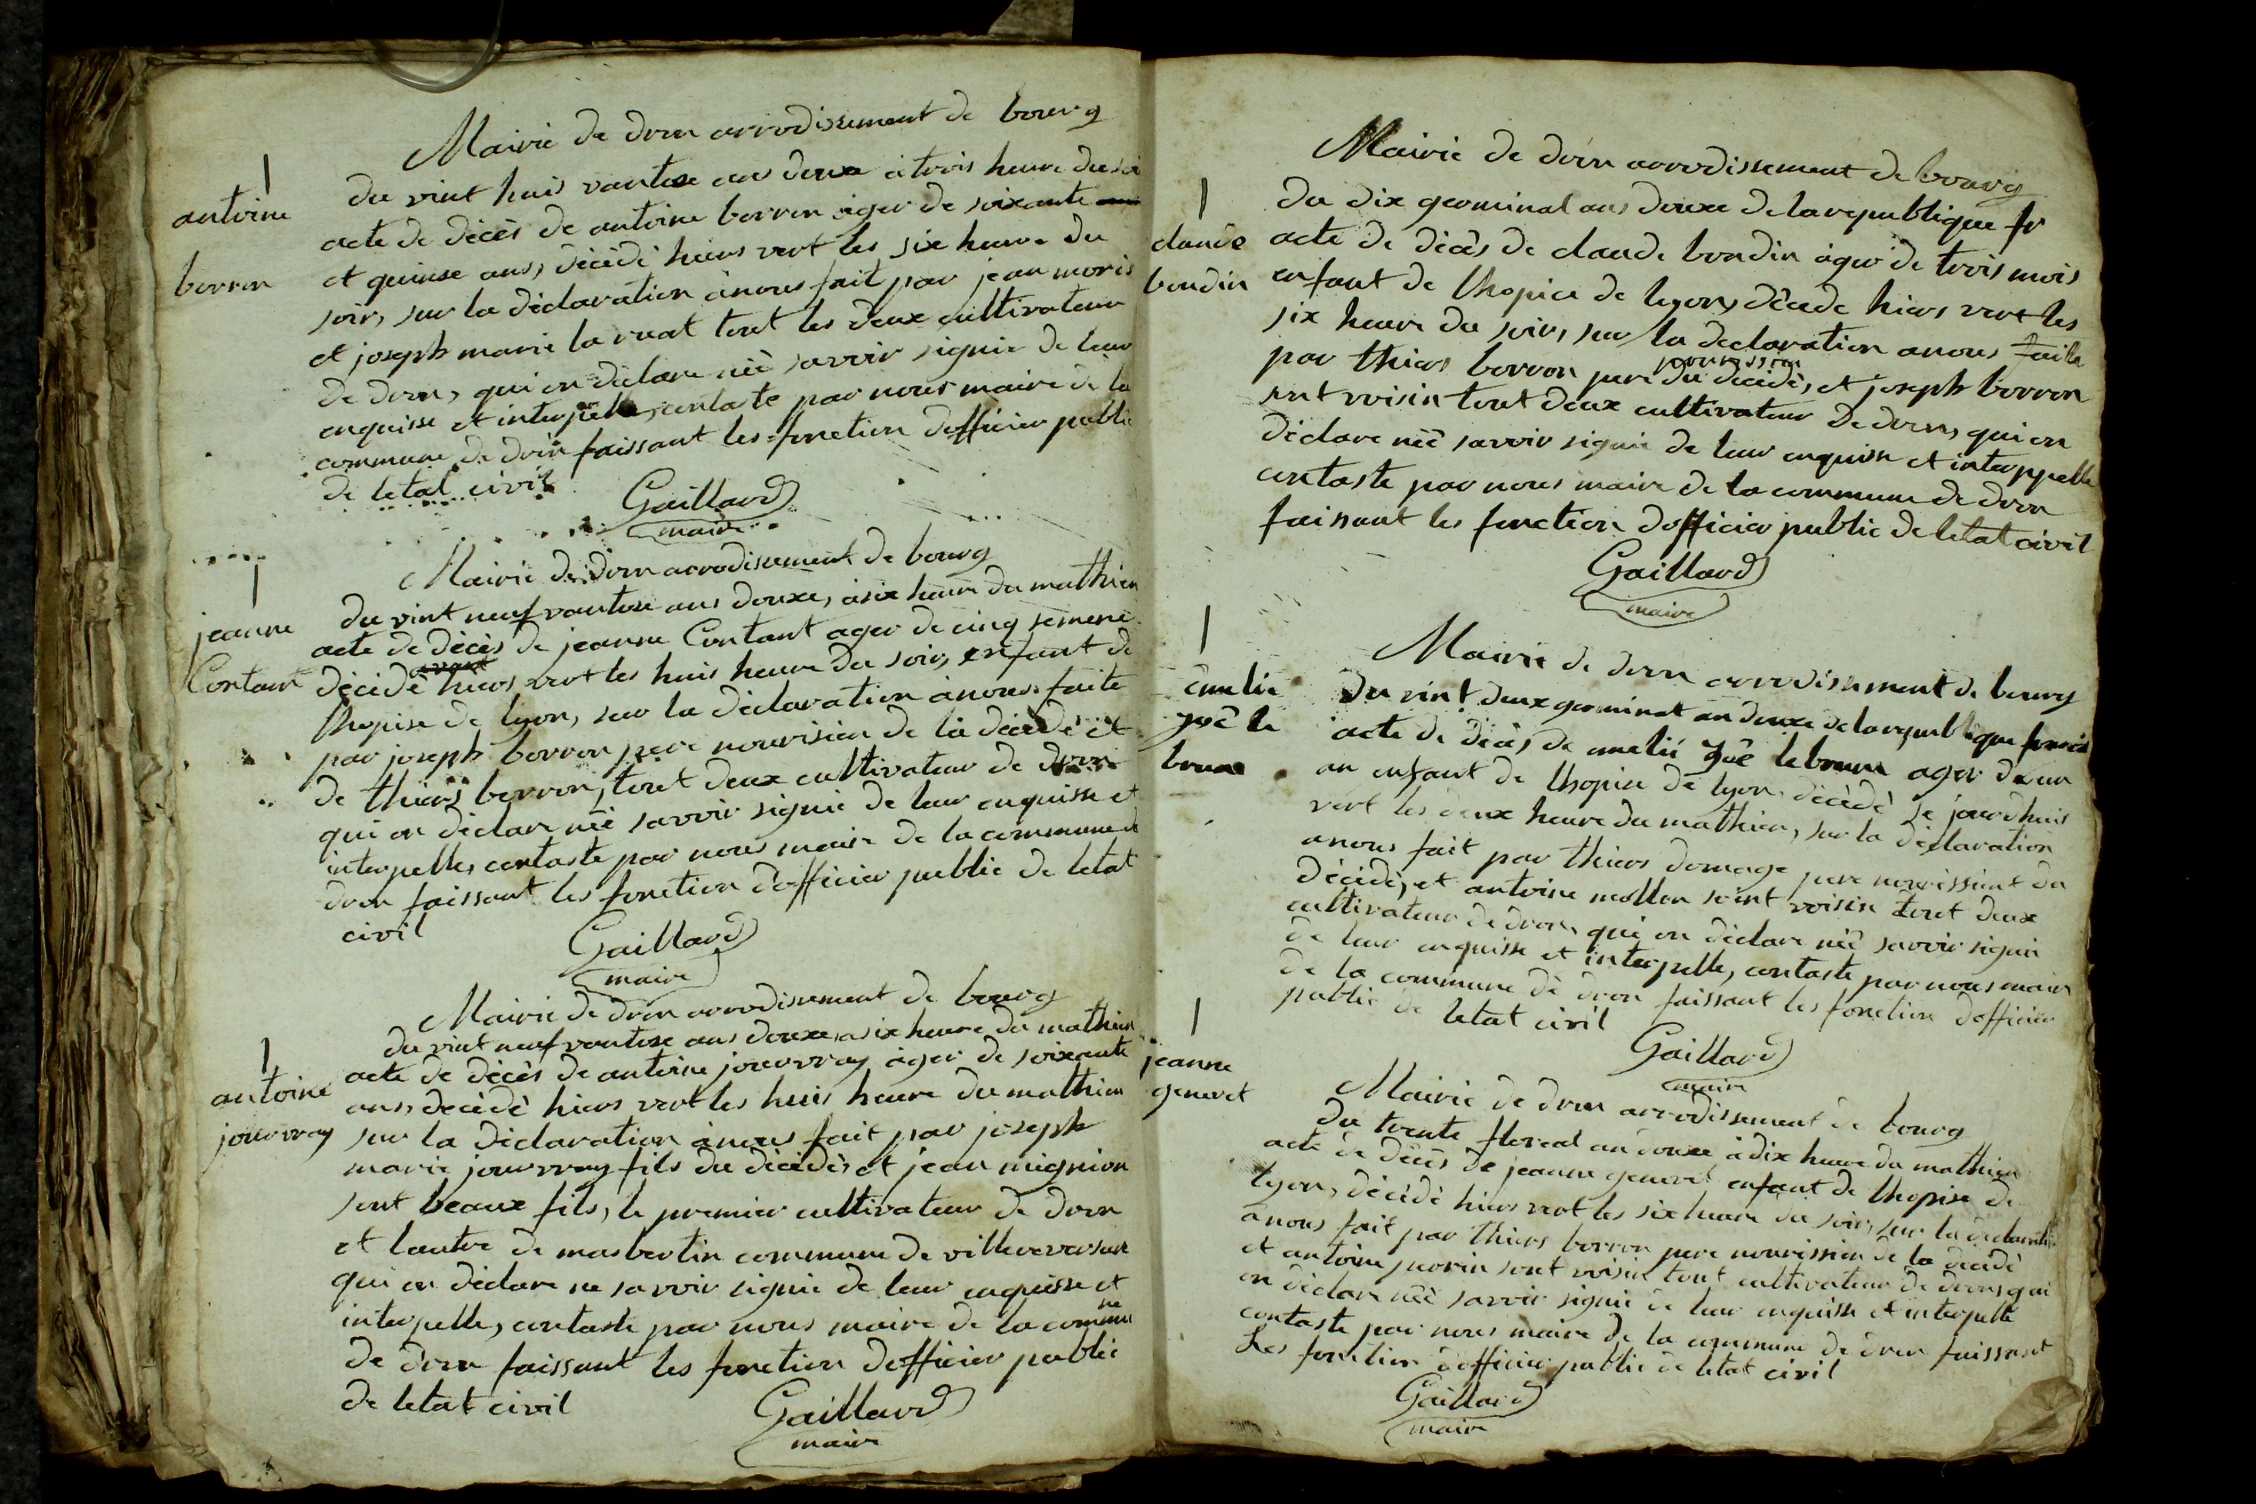 Mairie de dron arrodissement de bourg
antoine
borron
du vint huis vantose ans douxe à trois heure du soi
acte de décès de antoine borron ager de soixante
et quinse ans, décèdè hiers vert les six heure du
soir, sur la dèclaration ànous fait par jean moris
et joseph marie la ruat tout les deux cultivateur
de dron, qui on dèclare nèè savoir signie de leur
enquisse et interpelle, contaste par nous maire de la
commune de dron faissant les fonction dofficier public
de letat civil
Gaillard
maire
Mairie de dron arrodisement de bourg
jeanne
Contant
du vint neuf vantose ans douxe, àsix heure du mathien
acte de dècès de jeanne Contant ager de cinq semene
dècidè hiers vert les huis heure du soir, enfant de
lhopise de lyon, sur la dèclaration ànous faite
par joseph borron pere nourisien de la dècèdè et
de thiers borron, tout deux cultivateur de dron
qui on dèclare nèè savoir signie de leur enquisse et
interpelle, contaste par nous maire de la commune de
dron faissant les fonction dofficier public de letat
civil
Gaillard
maire
Mairie de dron arrodissement de bourg
antoine
jouvray
du vint neuf vantose ans douxe, asix heure du mathien
acte de dècès de antoine jouvray àger de soixante
ans, dècèdè hiers vert les huis heure du mathien
sur la dèclaration ànous fait par joseph
marie jouvray fils du dècèdè, et jean mignion
sont beaux fils, le premier cultivateur de dron
et lautre de masbertin commune de villereversure
qui on dèclare ne savoir signie de leur enquisse et
interpelle, contaste par nous maire de la commune
de dron faissant les fonction dofficier public
de letat civil
Gaillard
maire
Mairie de dron arrodissement de bourg
claude
bondin
du dix germinal ans douxe de larepublique fr
acte de dècès de claude bondin àger de trois mois
enfant de lhopice de lyon, dècede hiers vert les
six heure du soir, sur la declaration anous faite
par thiers borron pere nourission du dècèdè, et joseph borron
sont voisin tout deux cultivateur de dron, qui on
dèclare nèè savoir signie de leur enquisse et interppelle
contaste par nous maire de la commune de dron
faissant les fonction dofficier public de letat civil
Gaillard
maire
Mairie de dron arrodissement de bourg
èmelie
yoè le
brun
du vint deux germinal an douxe de larepublique
acte de dècès de emelié yoè lebrun ager de un
an enfant de lhopise de lyon dècèdè se jourdhuis
vert les deux heure du mathien, sur la dèclaration
anous fait par thiers domage pere nourissient du
dècèdè, et antoine mollon sont voisin tout deux
cultivateur de dron, qui on dèclare nèè savoir signie
de leur enquisse et interpelle, contaste par nous maire
de la commune de dron faissant les fonction dofficier
public de letat civil
Gaillard
maire
Mairie de dron arrodissement de bourg
jeanne
genevet
du trente florèal an douxe à dix heure du mathien
acte de dècès de jeanne genevet enfant de lhopise de
lyon, dècèdè hiers vert les six heure du soir, sur la dèclaration
ànous fait par thiers borron pere nourission de la dècèdè
et antoine morin sont voisin tout cultivateur de dron, qui
on dèclare nèè savoir signie de leur enquisse et interpelle
contaste par nous maire de la commune de dron faissant
Les fonction dofficier public de letat civil
Gaillard
maire